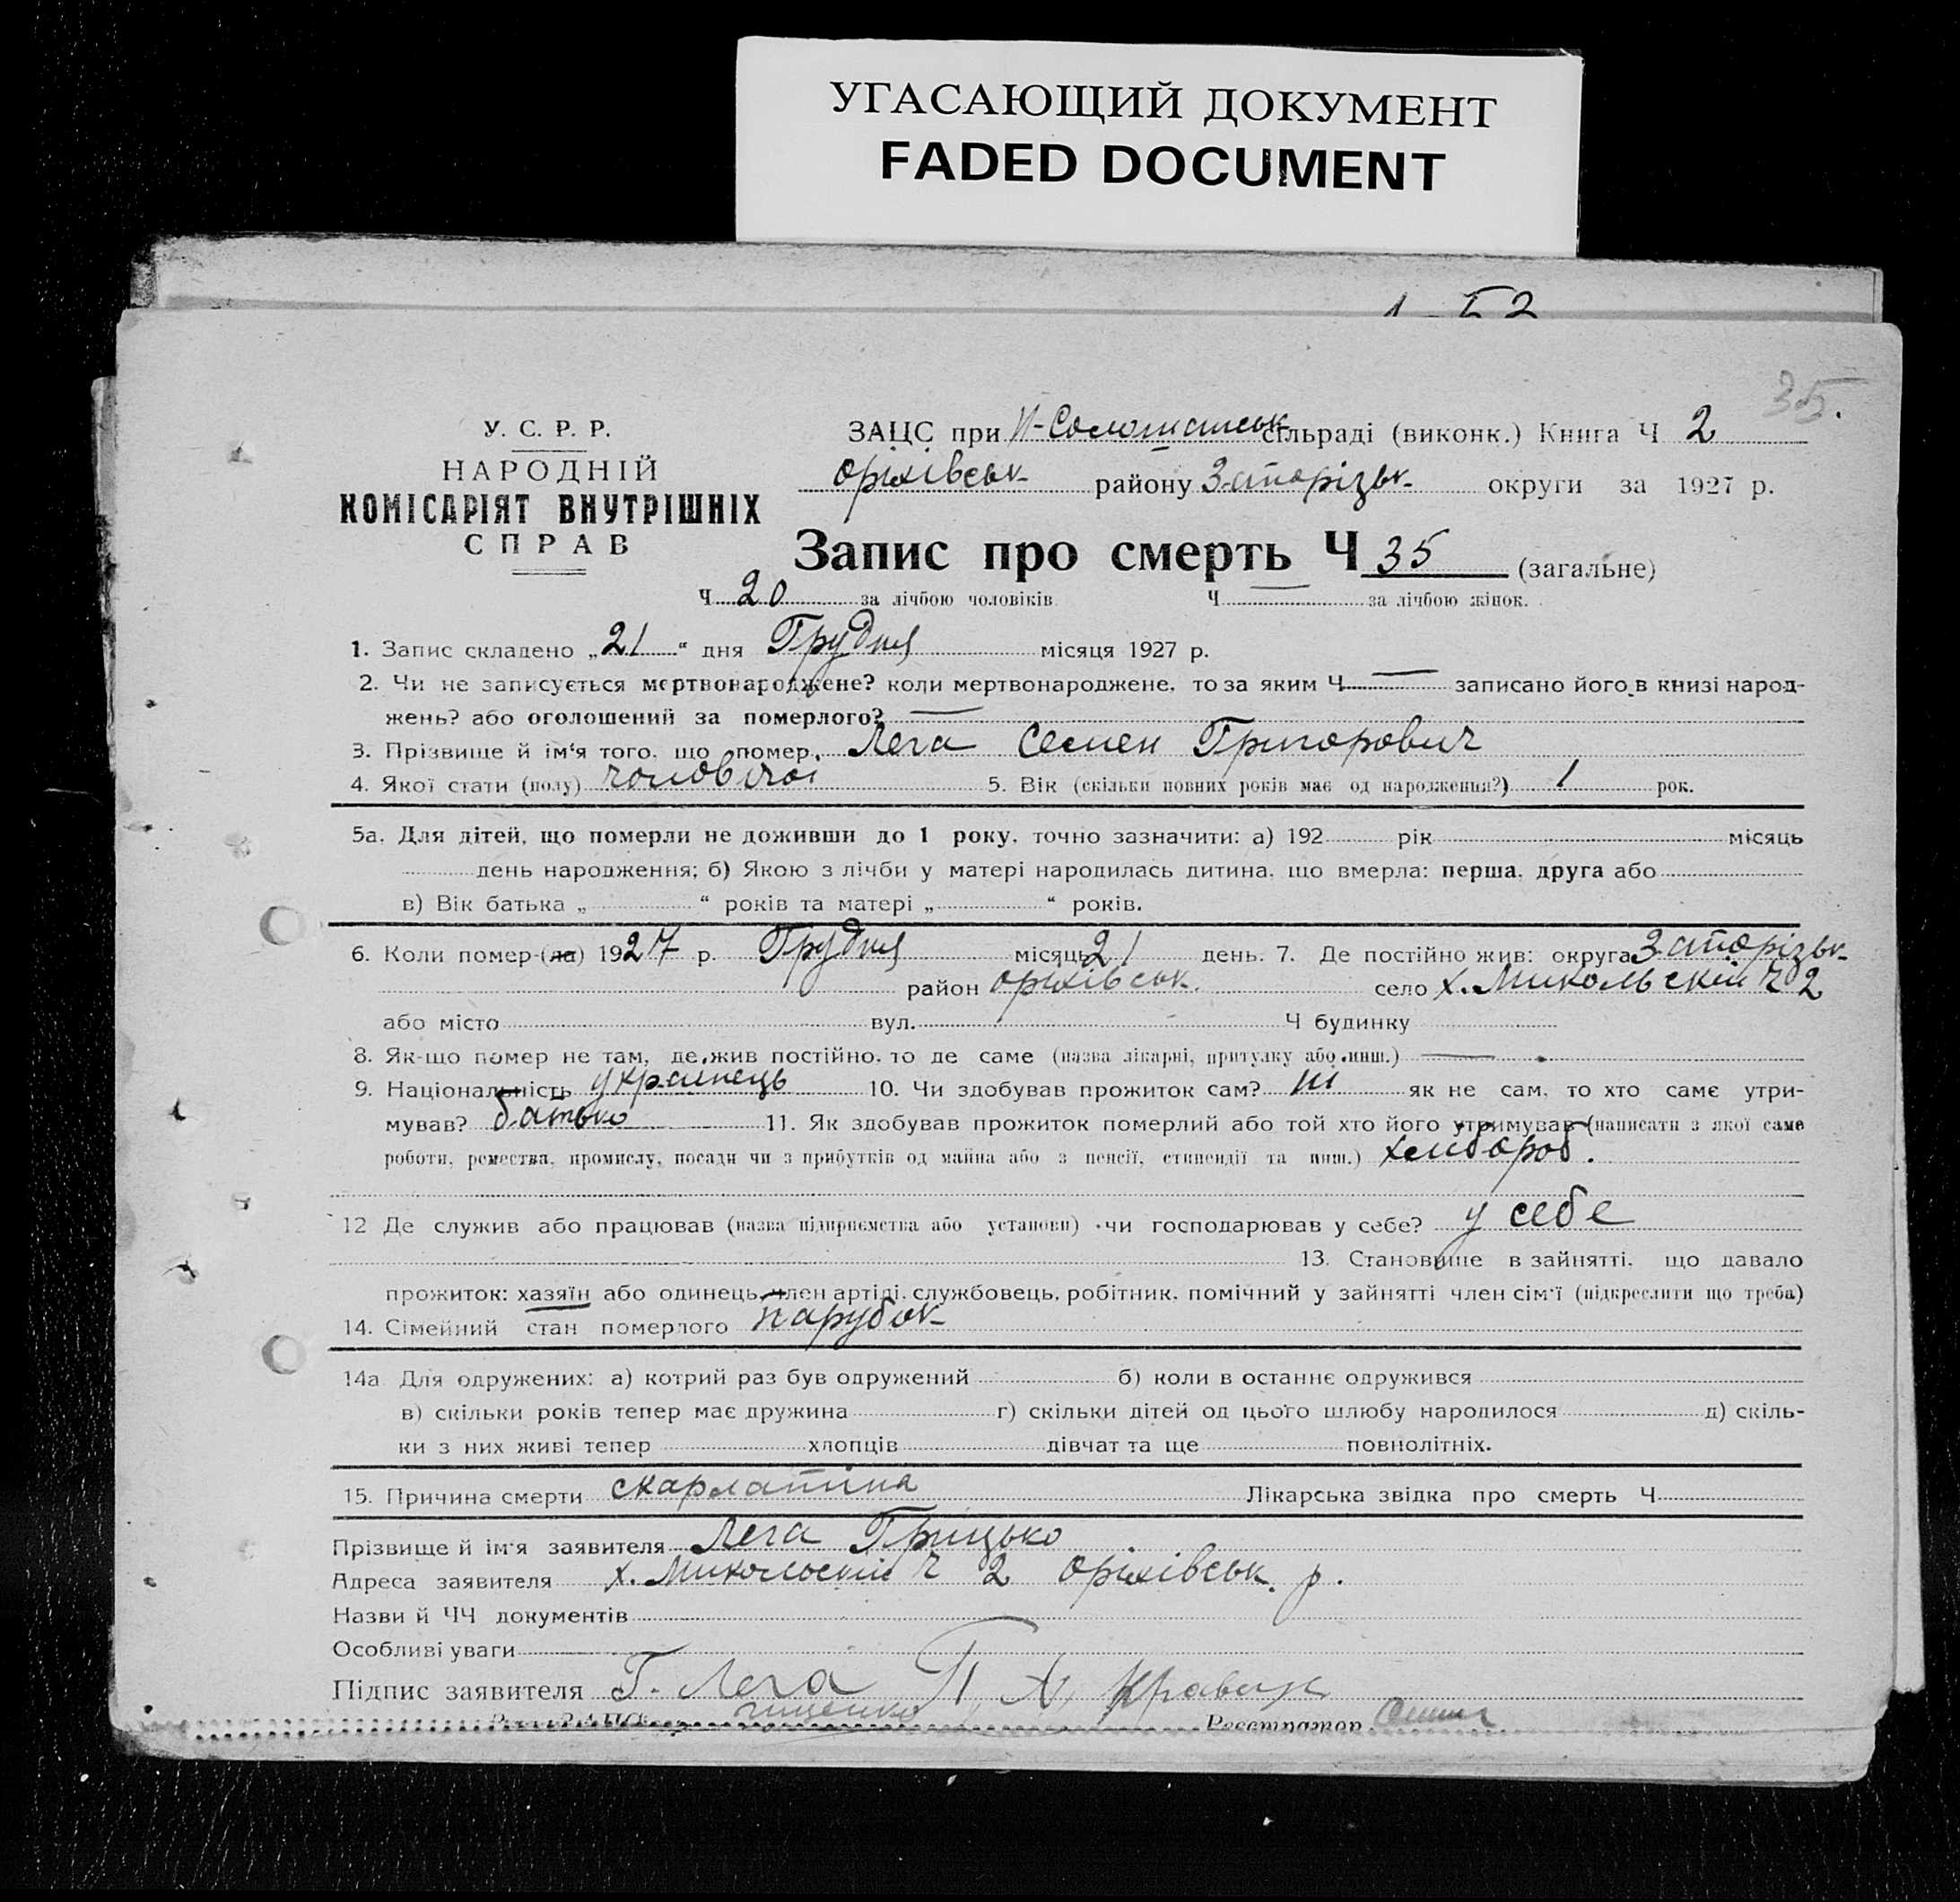 УГАСАЮЩИЙ ДОКУМЕНТ
FADED DOCUMENT
35.
У. С. Р. Р.
НАРОДНІЙ
КОМІСАРІЯТ ВНУТРІШНІХ
СПРАВ
ЗАЦС при сільраді (виконк.) Книга Ч 2
Оріхівськ району Запорізьк округи за 1927 р.
Запис про смерть Ч 35 (загальне)
Ч 20 за лічбою чоловіків Ч — за лічбою жінок.
1. Запис складено „21“ дня Грудня місяця 1927 р.
2. Чи не записується мертвонароджене? коли мертвонароджене, то за яким Ч — записано його в книзі народ-
жень? або оголошений за померлого? —
3. Прізвище й ім'я того, що помер, Лега Семен Григорович
4. Якої стати (полу) чоловічої 5. Вік (скільки повних років має од народження?) 1 рок.
5а. Для дітей, що померли не доживши до 1 року, точно зазначити: а) 192 рік місяць
день народження; б) Якою з лічби у матері народилась дитина, що вмерла: перша, друга або
в) Вік батька „ “ років та матері „ “ років.
6. Коли помер-(ла) 1927 р. Грудня місяць 21 день. 7. Де постійно жив: округа Запорізьк
район Оріхівськ. село х. Микольскій Ч 2
або місто вул. Ч будинку
8. Як-що помер не там, де жив постійно, то де саме (назва лікарні, притулку або инш.) —
9. Національність українець 10. Чи здобував прожиток сам? ні як не сам, то хто саме утри-
мував? батько 11. Як здобував прожиток померлий або той хто його утримував (написати з якої саме
роботи, ремества, промислу, посади чи з прибутків од майна або з пенсії, стипендії та инш.) хлібороб.
12 Де служив або працював (назва підприємства або установи) чи господарював у себе? у себе
13. Становище в зайнятті, що давало
прожиток: хазяїн або одинець, член артілі, службовець, робітник, помічний у зайнятті член сім'ї (підкреслити що треба)
14. Сімейний стан померлого парубок
14а Для одружених: а) котрий раз був одружений б) коли в останнє одружився
в) скільки років тепер має дружина г) скільки дітей од цього шлюбу народилося д) скіль-
ки з них живі тепер хлопців дівчат та ще повнолітніх.
15. Причина смерти скарлатіна Лікарська звідка про смерть Ч
Прізвище й ім'я заявителя Лега Грицько
Адреса заявителя х. Микольскій Ч 2 Оріхівськ. р.
Назви й ЧЧ документів
Особливі уваги
Підпис заявителя Г. Лега
Реєстратор